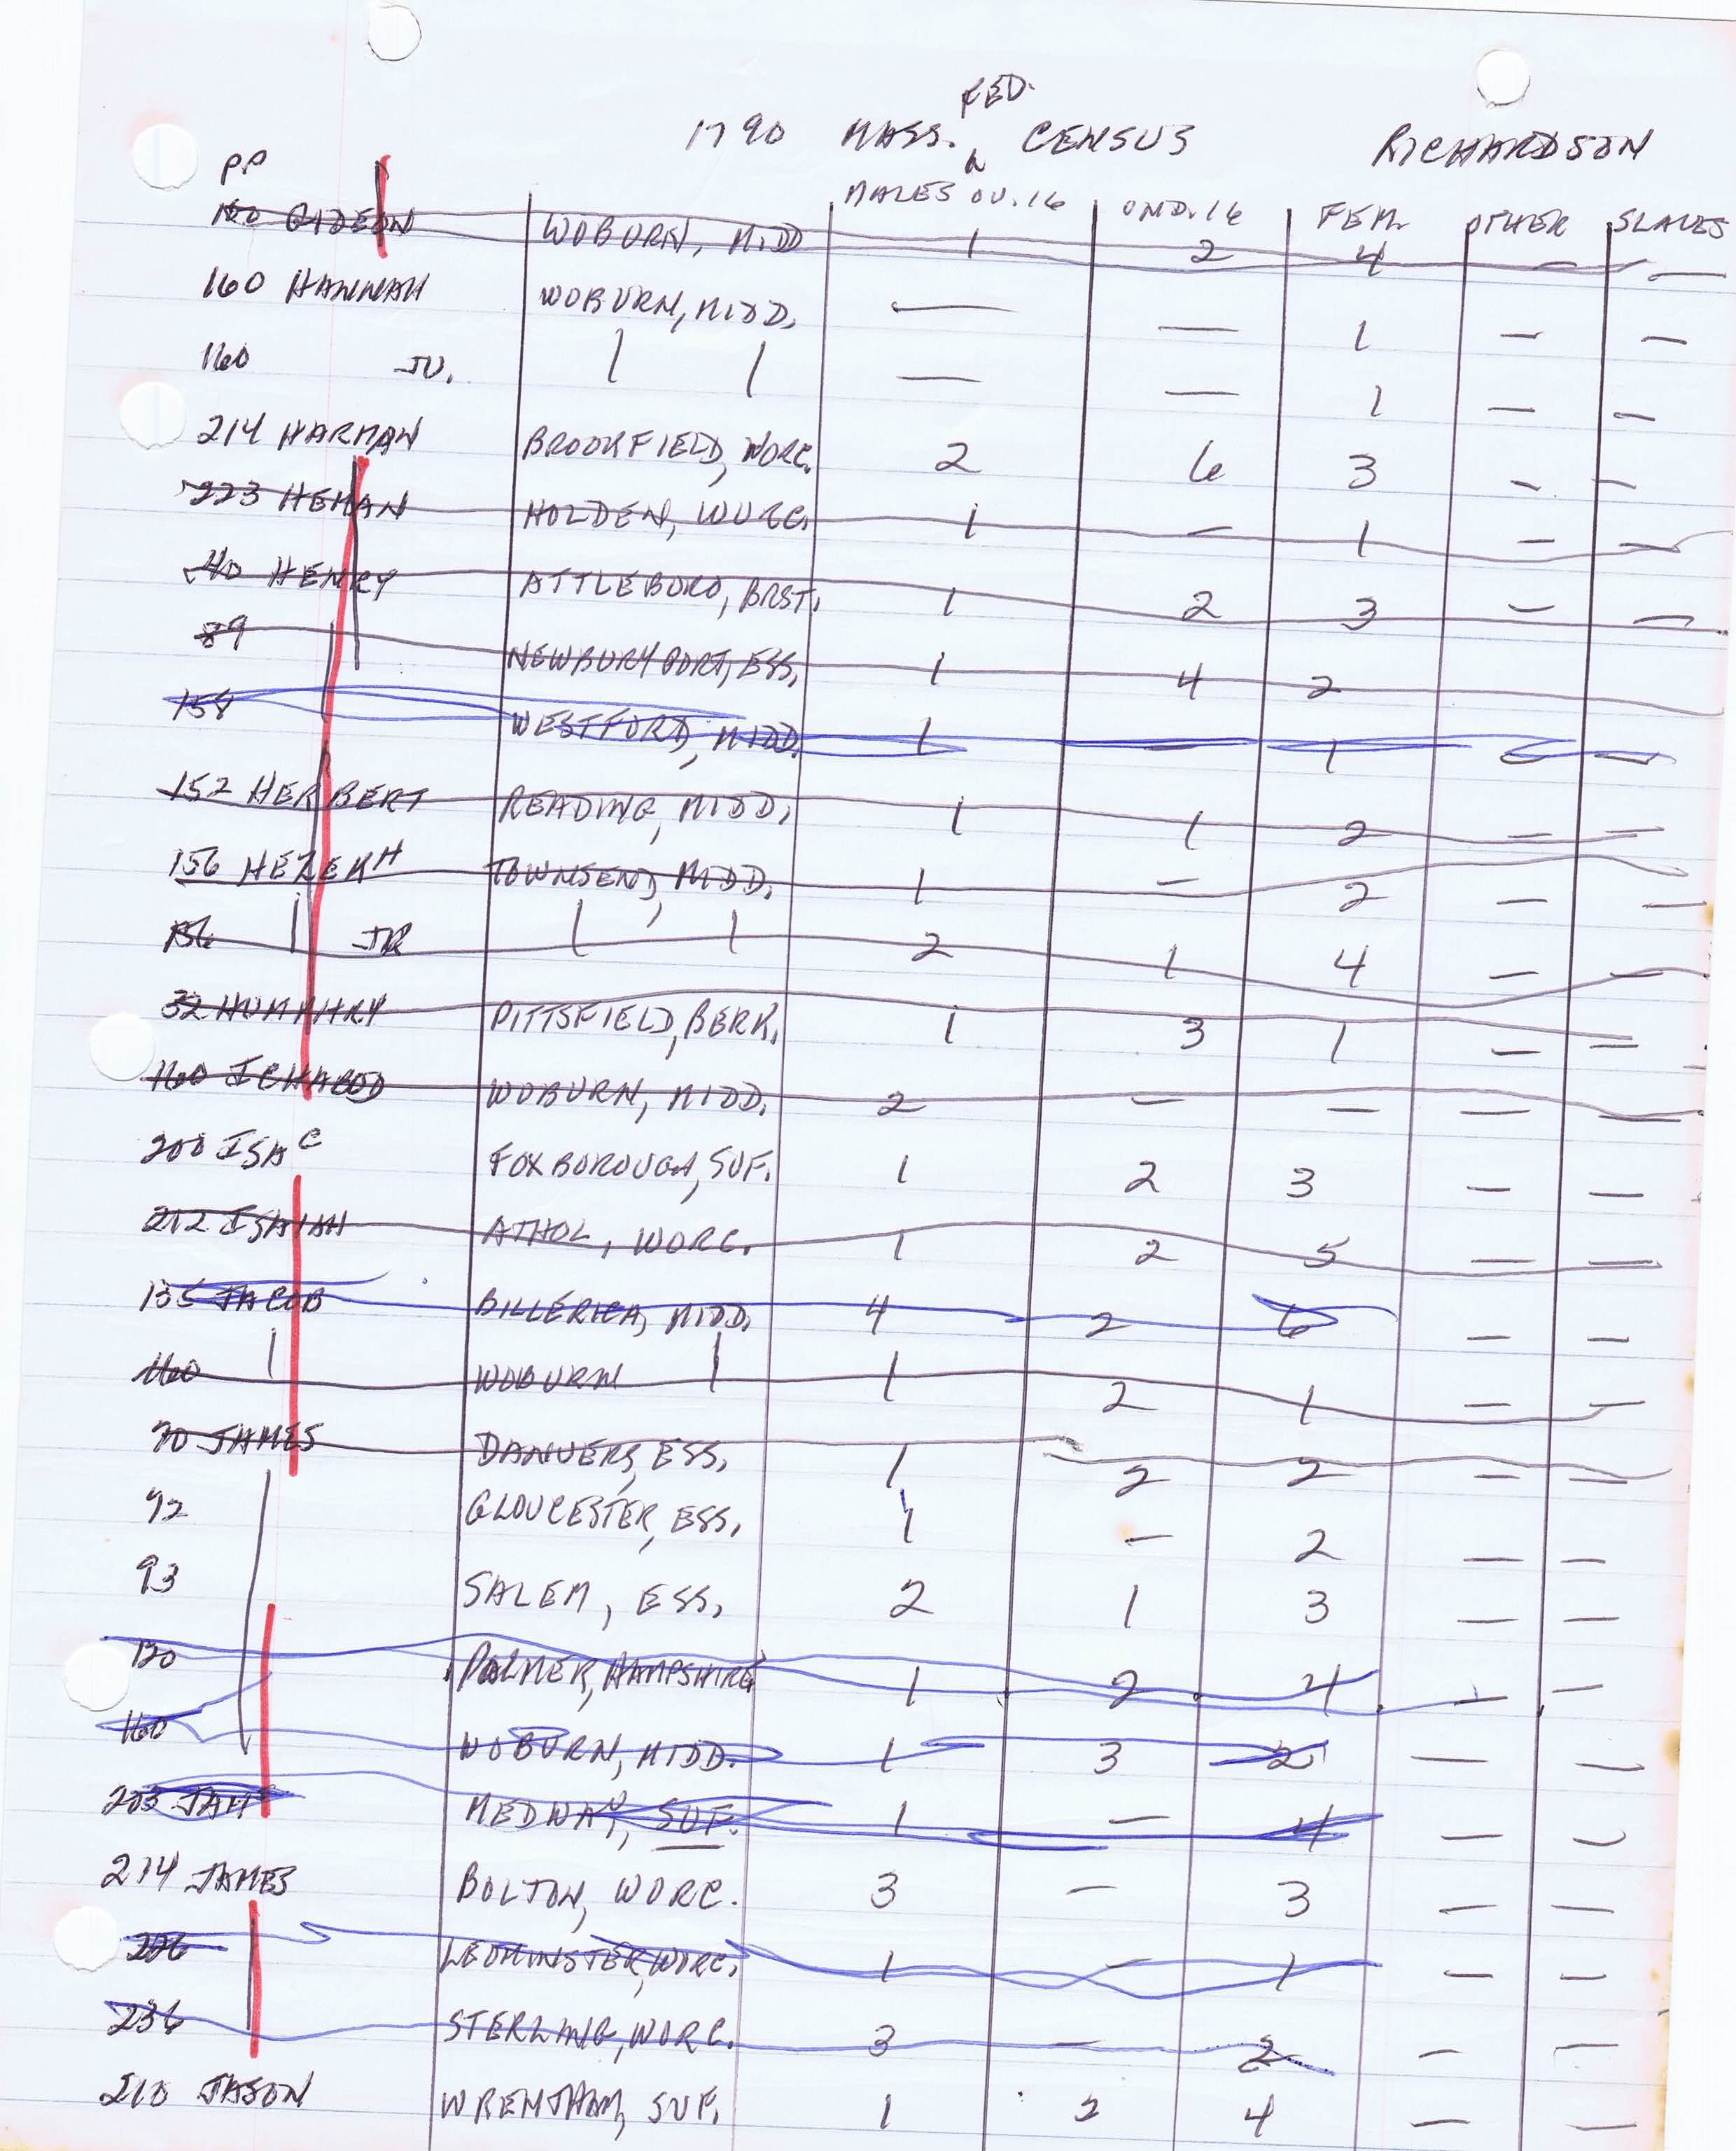 FED.
1790 MASS. ^ CENSUS RICHARDSON
PP MALES OV.16 UND.16 FEM. OTHER SLAVES
160 GIDEON WOBURN, MIDD 1 2 4 — —
160 HANNAH WOBURN, MIDD. — — 1 — —
160 JU. | | — — 1 — —
214 HARMAN BROOKFIELD, WORC. 2 6 3 — —
223 HEMAN HOLDEN, WORC. 1 — 1 — —
40 HENRY ATTLEBORO, BRST. 1 2 3 — —
89 NEWBURYPORT, ESS. 1 4 2
158 WESTFORD, MIDD. 1 — 1 — —
152 HERBERT READING, MIDD. 1 1 2 — —
156 HEZEKH TOWNSEND, MIDD. 1 — 2 — —
156 | JR | | 2 1 4 — —
32 HUMPHRY PITTSFIELD, BERK. 1 3 1 — —
160 ICHABOD WOBURN, MIDD. 2 — — — —
200 ISAC FOXBOROUGH, SUF. 1 2 3 — —
212 ISAIAH ATHOL, WORC. 1 2 5 — —
135 JACOB BILLERICA, MIDD. 4 2 6 — —
160 | WOBURN | 1 2 1 — —
70 JAMES DANVERS, ESS. 1 2 2 — —
92 GLOUCESTER, ESS. 1 — 2 — —
93 SALEM, ESS. 2 1 3 — —
120 PALMER, HAMPSHIRE 1 2 4 — —
160 WOBURN, MIDD. 1 3 2 — —
203 JAMS MEDWAY, SUF. 1 — 4 — —
214 JAMES BOLTON, WORC. 3 — 3 — —
226 LEOMINSTER, WORC. 1 — 1 — —
236 STERLING, WORC. 3 — 2 — —
210 JASON WRENTHAM, SUF. 1 2 4 — —